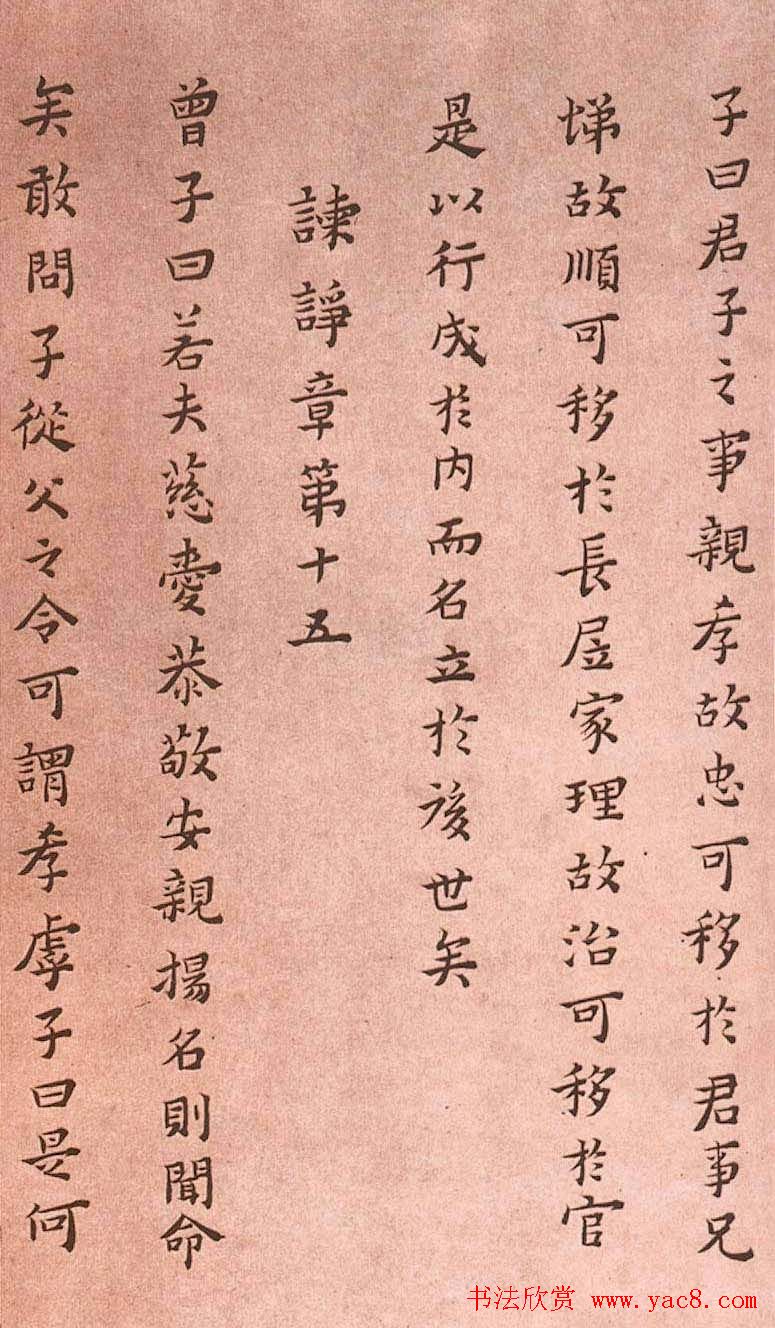 子曰君子之事親孝故忠可移於君事兄
悌故順可移於長居家理故治可移於官
是以行成於内而名立於後世矣
諫諍章第十五
曾子曰若夫慈愛恭敬安親揚名則聞命
矣敢問子從父之令可謂孝虖子曰是何
书法欣赏 www.yac8.com